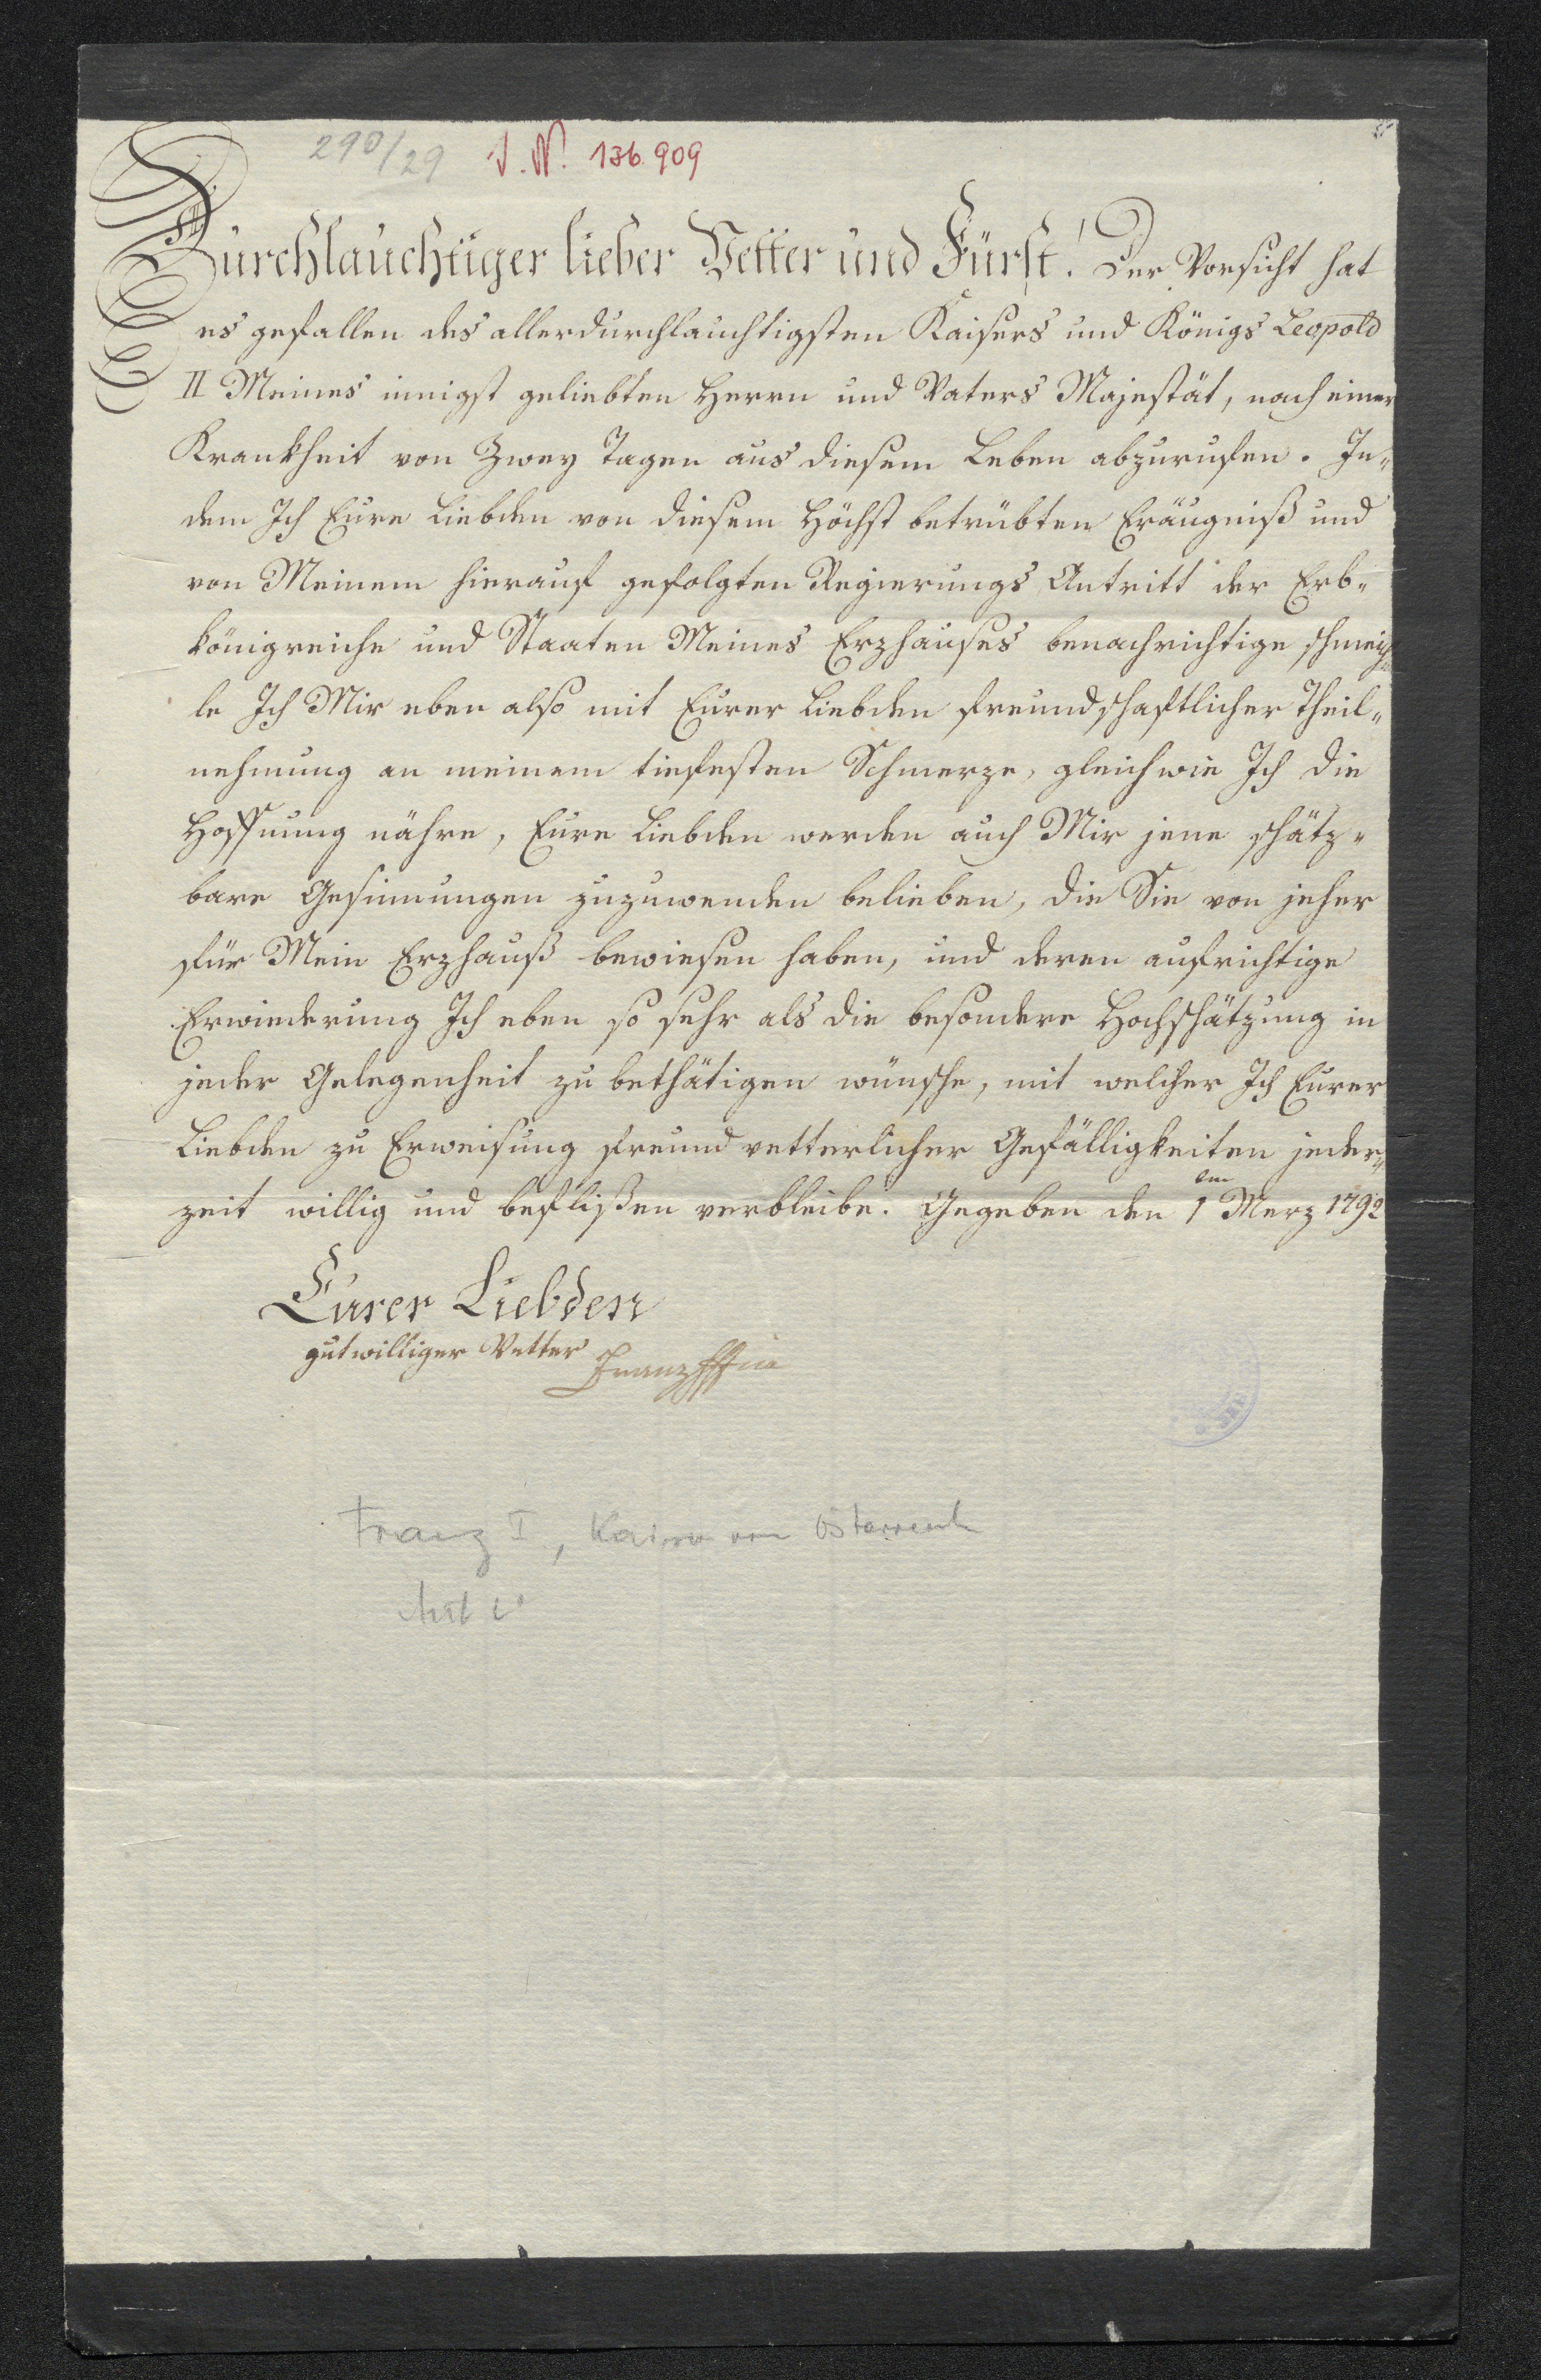 290/29 I. N. 136.909
Durchlauchtiger lieber Vetter und Fürst! Der Vorsicht hat
es gefallen des allerdurchlauchtigsten Kaisers und Königs Leopold
II Meines innigst geliebten Herrn und Vaters Majestät, nach einer
Krankheit von Zwey Tagen aus diesem Leben abzurufen. In-
dem Ich Eure Liebden von diesem Höchst betrübten Eräugniß und
von Meinem hierauf gefolgten Regierungs Antritt der Erb-
königreiche und Staaten Meines Erzhauses benachrichtige schmeich-
le Ich Mir eben also mit Eurer Liebden freundschaftlicher Theil-
nehmung an meinem tiefesten Schmerze, gleichwie Ich die
Hoffnung nähre, Eure Liebden werden auch Mir jene schätz-
bare Gesinnungen zuzuwenden belieben, die Sie von jeher
für Mein Erzhauß bewiesen haben, und deren aufrichtige
Erwiederung Ich eben so sehr als die besondere Hochschätzung in
jeder Gelegenheit zu bethätigen wünsche, mit welcher Ich Eurer
Liebden zu Erweisung freund vetterlicher Gefälligkeiten jeder-
zeit willig und beflißen verbleibe. Gegeben den 1ten Merz 1792
Eurer Liebden
gutwilliger Vetter Franz
Franz I, Kaiser von Österreich